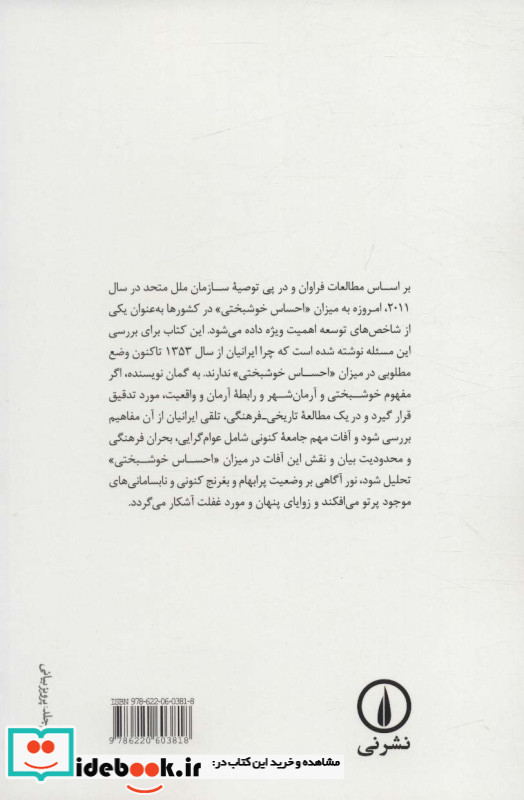 بر اساس مطالعات فراوان و در پی توصیهٔ سازمان ملل متحد در سال
۲۰۱۱، امروزه به میزان «احساس خوشبختی» در کشورها به‌عنوان یکی
از شاخص‌های توسعه اهمیت ویژه داده می‌شود. این کتاب برای بررسی
این مسئله نوشته شده است که چرا ایرانیان از سال ۱۳۵۳ تاکنون وضع
مطلوبی در میزان «احساس خوشبختی» ندارند. به گمان نویسنده، اگر
مفهوم خوشبختی و آرمان‌شهر و رابطهٔ آرمان و واقعیت، مورد تدقیق
قرار گیرد و در یک مطالعهٔ تاریخی-فرهنگی، تلقی ایرانیان از آن مفاهیم
بررسی شود و آفات مهم جامعهٔ کنونی شامل عوام‌گرایی، بحران فرهنگی
و محدودیت بیان و نقش این آفات در میزان «احساس خوشبختی»
تحلیل شود، نور آگاهی بر وضعیت پرابهام و بغرنج کنونی و نابسامانی‌های
موجود پرتو می‌افکند و زوایای پنهان و مورد غفلت آشکار می‌گردد.
جلد: پرویز بیانی
ISBN 978-622-06-0381-8
9 786220 603818
نشرنی
idebook.ir
مشاهده و خرید این کتاب در: